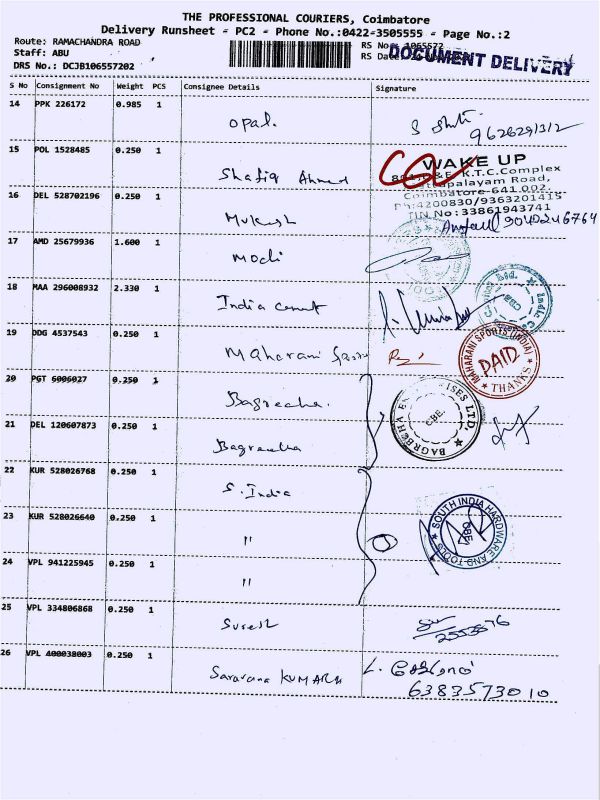 THE PROFESSIONAL COURIERS, Coimbatore
Delivery Runsheet - PC2 - Phone No.:0422-3505555 - Page No.:2
Route: RAMACHANDRA ROAD
Staff: ABU
DRS No.: DCJB106557202
RS No.: 1065572
RS Date:
DOCUMENT DELIVERY
S No Consignment No Weight PCS Consignee Details Signature
14 PPK 226172 0.985 1 Opal. 9626291312
15 POL 1528485 0.250 1 Shafiq Ahmed
WAKE UP
K.T.C.Complex
Coimbatore-641 002.
Ph:4200830/9363201415
TIN No:33861943741
16 DEL 528702196 0.250 1 Mukesh 9042246764
17 AMD 25679936 1.600 1 Modi
18 MAA 296008932 2.330 1 India Cement
19 DDG 4537543 0.250 1 Maharani Sports
MAHARANI SPORTS (INDIA)
PAID
THANKS
20 PGT 6006027 0.250 1 Bagrecha.
21 DEL 120607873 0.250 1 Bagrecha
BAGRECHA ENTERPRISES LTD.
CBE.
22 KUR 528026768 0.250 1 S. India
23 KUR 528026640 0.250 1 "
SOUTH INDIA HARDWARE AND TOOLS
CBE
24 VPL 941225945 0.250 1 "
25 VPL 334806868 0.250 1 Suresh
26 VPL 400038003 0.250 1 Saravana KUMARA
6383573010